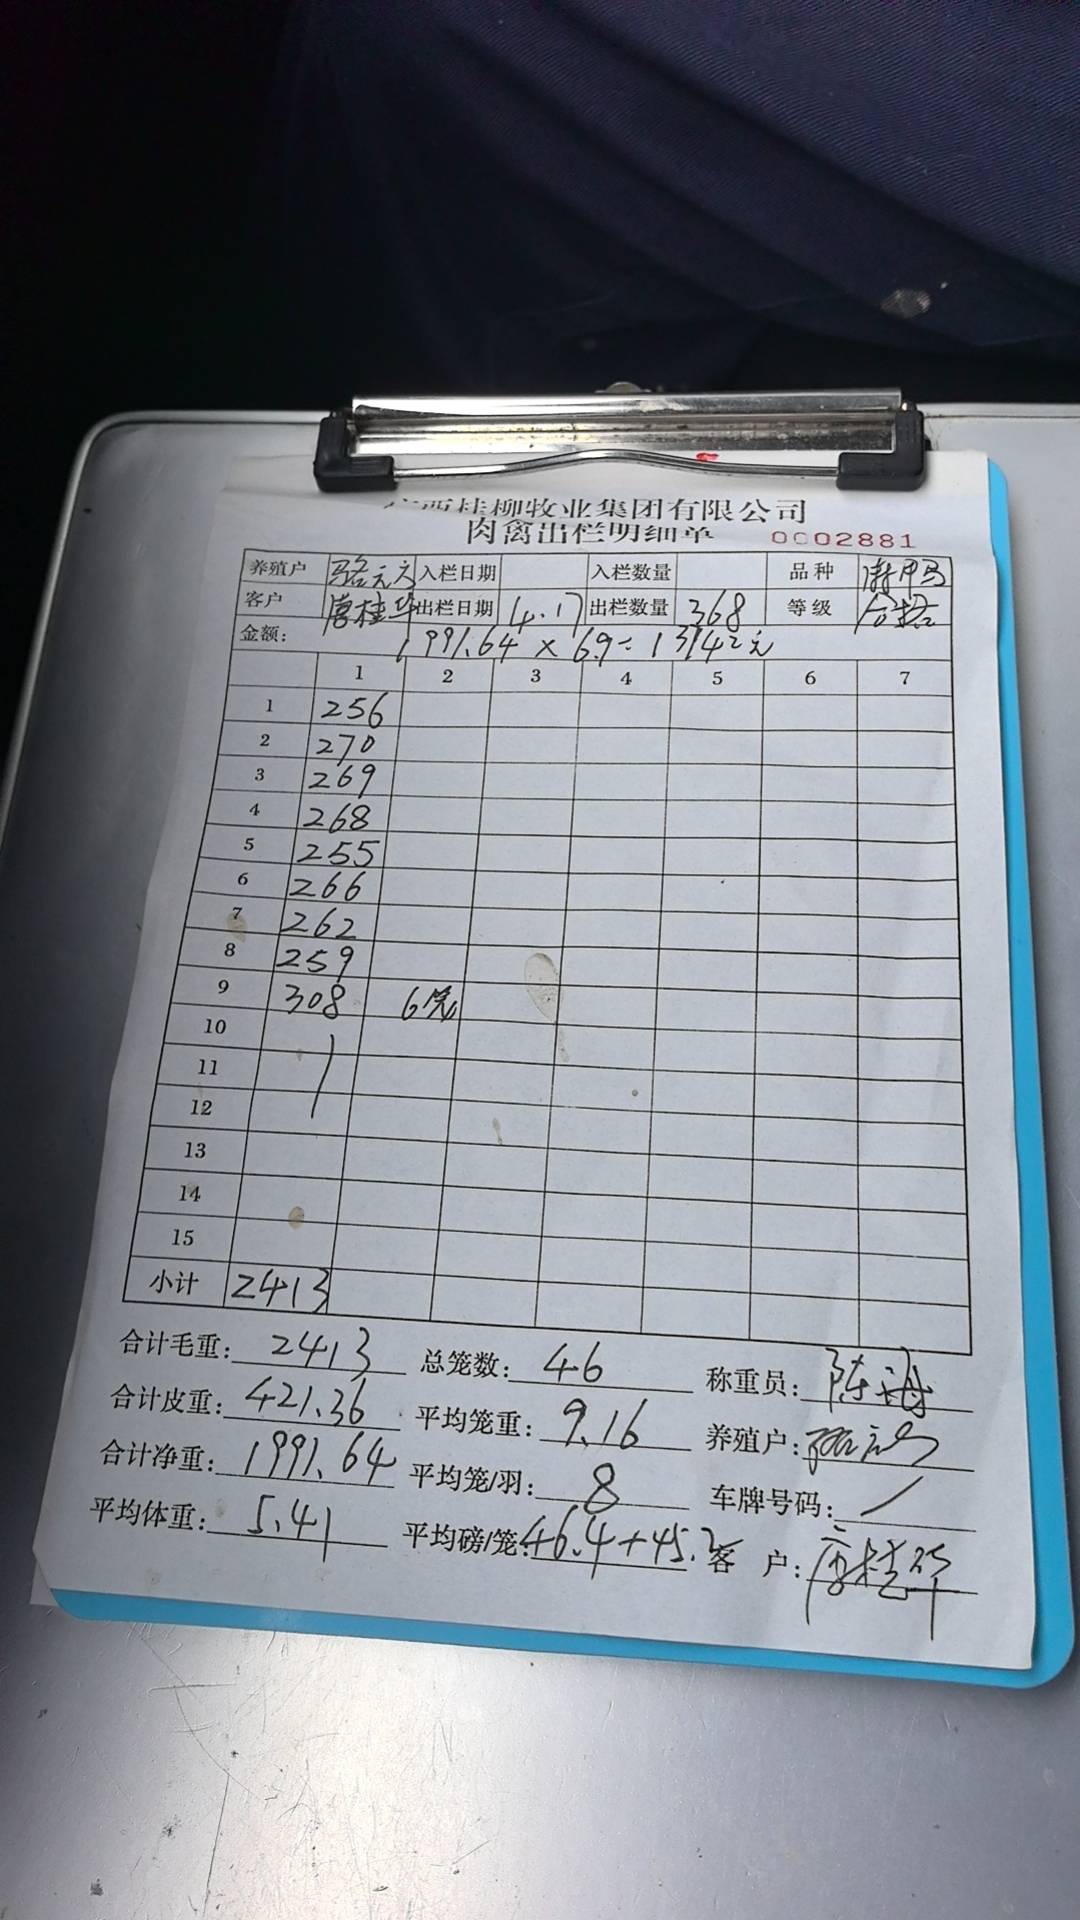 广西桂柳牧业集团有限公司
肉禽出栏明细单 0002881
养殖户 骆元六 入栏日期 入栏数量 品种
客户 唐桂华 出栏日期 4.17 出栏数量 368 等级 合格
金额: 1991.64 × 6.9 = 13742元
1 2 3 4 5 6 7
1 256
2 270
3 269
4 268
5 255
6 266
7 262
8 259
9 308 6笼
10
11
12
13
14
15
小计 2413
合计毛重: 2413 总笼数: 46 称重员: 陈海
合计皮重: 421.36 平均笼重: 9.16 养殖户:
合计净重: 1991.64 平均笼/羽: 8 车牌号码: /
平均体重: 5.41 平均磅/笼: 46.4+45.2 客户: 唐桂华